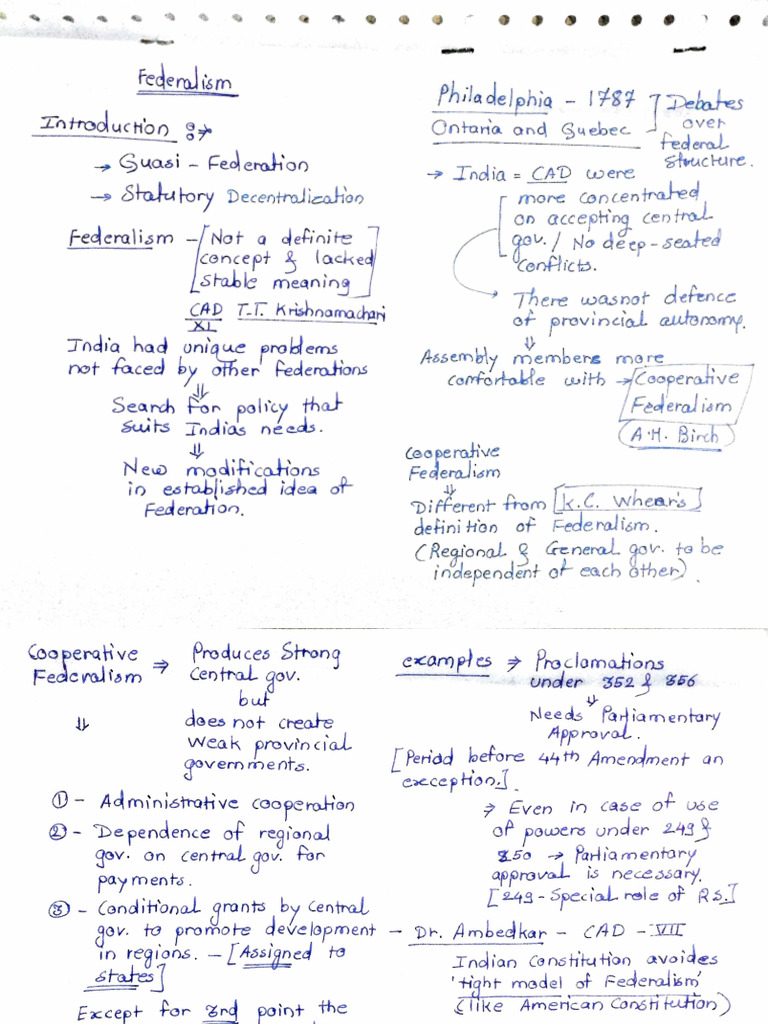 Federalism
Introduction :⇒
→ Quasi - Federation
→ Statutory Decentralization
Federalism - [Not a definite
concept & lacked
stable meaning]
CAD T.T. Krishnamachari
XI
India had unique problems
not faced by other federations
⇓
Search for policy that
suits Indias needs.
⇓
New modifications
in established idea of
Federation.
Philadelphia - 1787
Ontaria and Quebec
] Debates
over
federal
structure.
→ India = CAD were
[more concentrated
on accepting central
gov. / No deep-seated
conflicts.
→ There wasnot defence
of provincial autonomy.
⇓
Assembly members more
comfortable with → Cooperative
Federalism
(A.H. Birch)
Cooperative
Federalism
⇓
Different from [K.C. Whear's]
definition of Federalism.
(Regional & General gov. to be
independent of each other).
Cooperative
Federalism ⇒
⇓
Produces Strong
Central gov.
but
does not create
weak provincial
governments.
① - Administrative cooperation
② - Dependence of regional
gov. on central gov. for
payments.
③ - Conditional grants by central
gov. to promote development
in regions. - [Assigned to
states]
Except for 3rd point the
examples ⇒ Proclamations
under 352 & 356
⇓
Needs Parliamentary
Approval.
[Period before 44th Amendment an
exception.].
⇒ Even in case of use
of powers under 249 &
250 → Parliamentary
approval is necessary.
[249 - Special role of RS.]
- Dr. Ambedkar - CAD - VII
Indian Constitution avoides
'tight model of Federalism'
(like American Constitution)